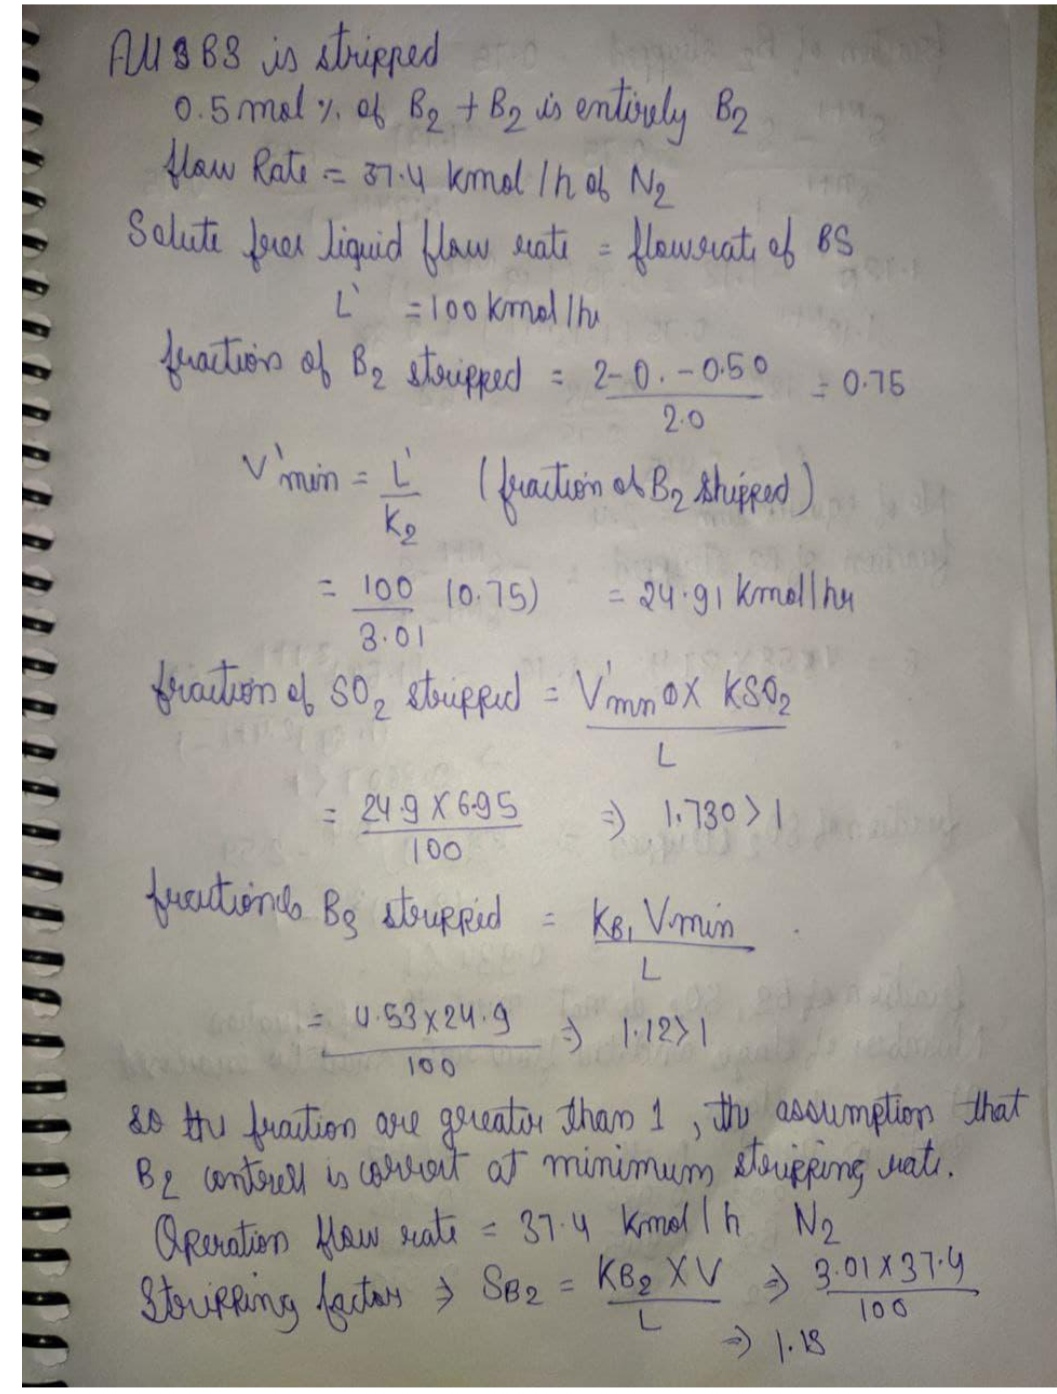 All 3 B3 is stripped
0.5 mol % of B2 + B2 is entirely B2
flow Rate = 37.4 kmol / h of N2
Solute free liquid flow rate = flowrate of BS
L' = 100 kmol / hr
fraction of B2 stripped = 2-0. - 0.50 / 2.0 = 0.75
V'min = L' / K2 (fraction of B2 stripped)
= 100 / 3.01 (0.75) = 24.91 kmol/hr
fraction of SO2 stripped = V'mn X KSO2 / L
= 24.9 X 6.95 / 100 ⇒ 1.730 > 1
B3 stripped = KB1 V.min / L
= 4.53 x 24.9 / 100 ⇒ 1.12 > 1
so the fraction are greater than 1, the assumption that
B2 controll is correct at minimum stripping rate.
Operation flow rate = 37.4 kmol / h N2
Stripping factor → SB2 = KB2 X V / L ⇒ 3.01 X 37.4 / 100
⇒ 1.13